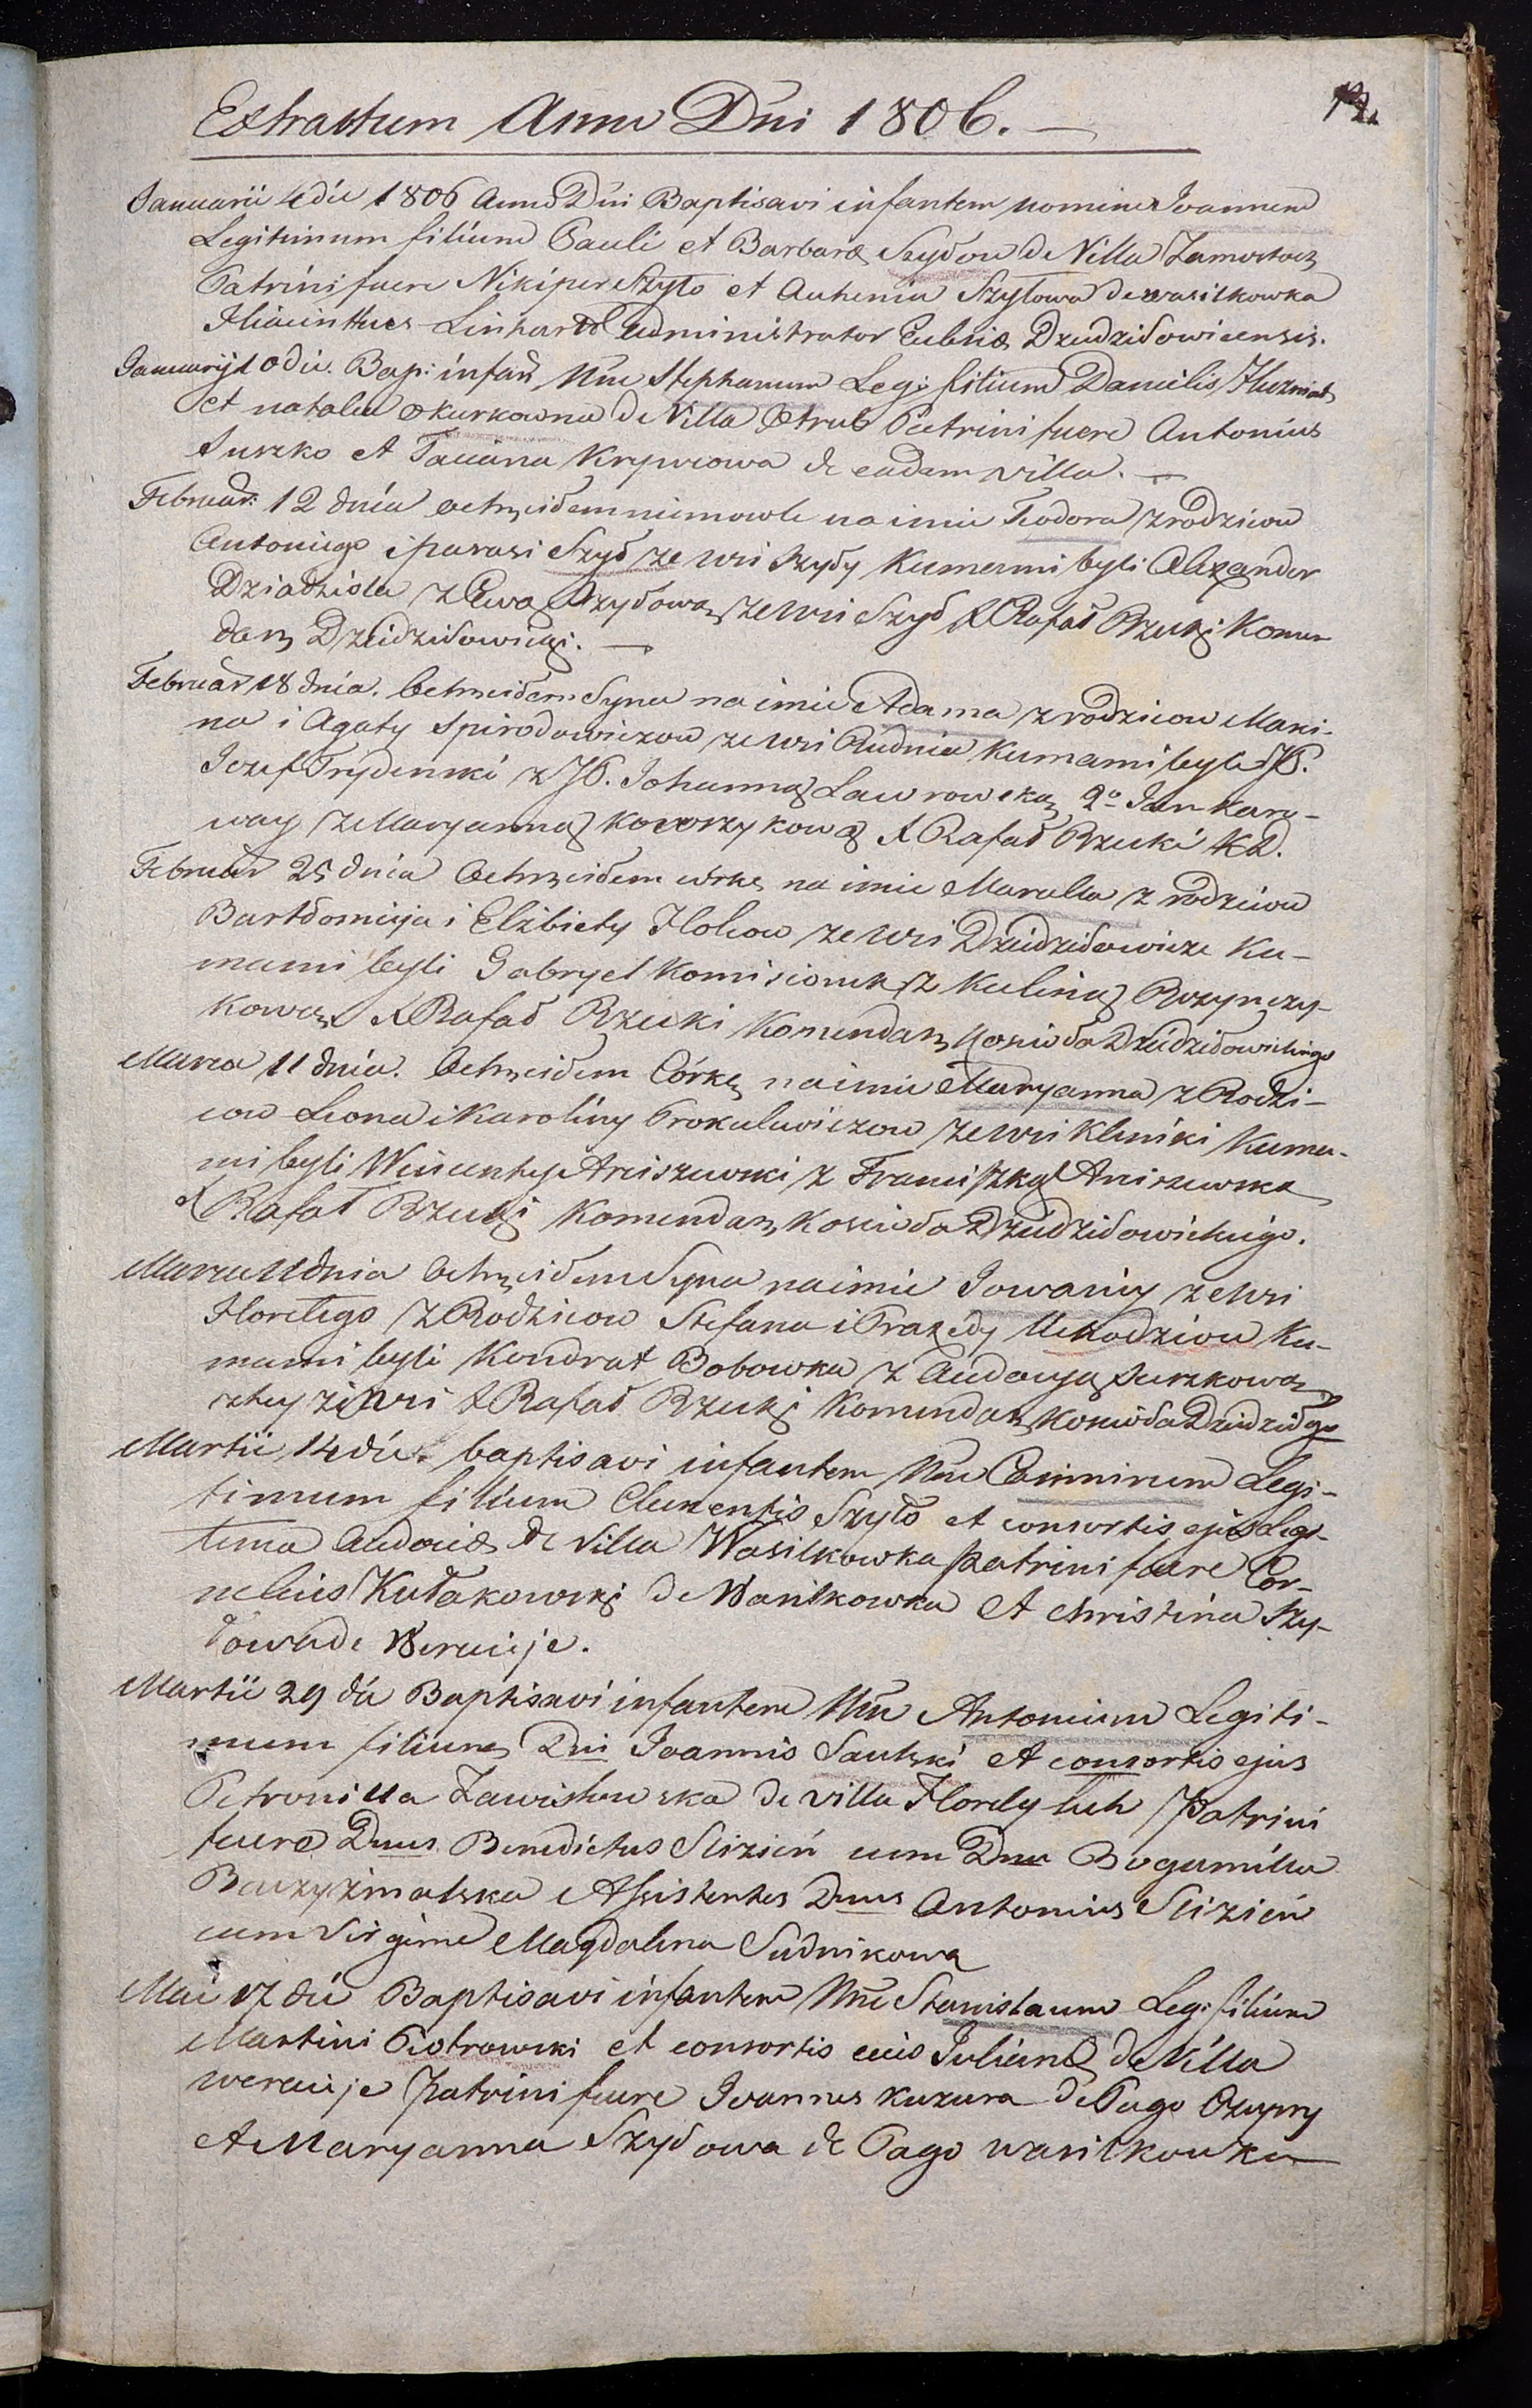 Extractum Anno Dni 1806. —
Januarii 4 die 1806 Anno Dni Baptisavi infantem nomine Joannem
Legitimum filium Pauli et Barbaræ Szyłow de Villa
Patrini fuere Nikiper Szyło et Auhenia Szyłowa de wasilkowka
Hiacinthus Linhard Administrator Dzudziłowicensis.
Januarij 10 die. Bap: infan Nne Stephanum Leg: filium Danielis
et natalia okurkowna de Villa Patrini fuere Antonius
Suszko et Taciana Krywcowa de eadem villa. —
Februar: 12 dnia ochrzciłem niemowle na imie Teodora z rodzicow
Antoniego i parasi Szył ze wsi Szyły Kumami byli Alexander
Dziadziela z Ewą Szyłową ze wsi Szył X Rafał Rzucki Komen
darz Dzudziłowicki. —
Februar 18 dnia. Ochrzciłem Syna na imie Adama z rodzicow Maxi-
na i Agaty Spirodowiczow ze wsi Rudnia Kumami byli JP.
Jozef Trydenski z JP. Johanną Lawrowską 2o Jan Kara-
way z Maryanną X Rafał Rzucki KD.
Februar 25 dnia Ochrzciłem córke na imie Maralla z rodzicow
Bartłomieja i Elżbiety Holcow ze wsi Dzudziłowicze Ku-
mami byli Gabryel Komisionek z Kuliną
kową X Rafał Rzucki Komendarz Koscioła Dzudziłowickiego
Marca 11 dnia. Ochrzciłem Córkę na imie Maryanna z Rodzi-
cow Leona i Karoliny Prokulewiczow ze wsi Klinki Kuma-
mi byli Wincenty Arciszewski z Franciszką Arciszewską
X Rafał Rzucki Komendarz Kosciola Dzudziłowickiego.
Marca 11 dnia Ochrzciłem Syna na imie ze wsi
Horeligo z Rodzicow Stefana i Praxedy Ku-
mami byli Kondrat Bobowka z Audocyą Suszkową
teyże wsi X Rafał Rzucki Komendarz Kosciola Dzudziłgo
Martii 14 die. baptisavi infantem Nne Casimirum Legi-
timum filium Clementis Szyło et consortis ejus Legi-
tima Audociæ de Villa Wasilkowka patrini fuere Cor-
nelius Kułakowski de Wasilkowka et christina Szy-
łowa de Wereuje.
Martii 29 die Baptisavi infantem Nne Antonium Legiti-
mum filium Dni Joannis Sautski et consortis ejus
Petronilla Zawistowska de villa Horelyluh Patrini
fuere Dnus Benedictus Slizień cum Dna Bogumilla
Assistentes Dnus Antonius Slizień
cum Virgine Magdalena Sudnikowa
Mai 17 die Baptisavi infantem Nne Stanislaum Leg: filium
Martini Piotrowski et consortis eius Julianæ de Villa
wereuje Patrini fuere Joannes Kuzura de Pago Ozupry
et Maryanna Szyłowa de Pago wasilkowka